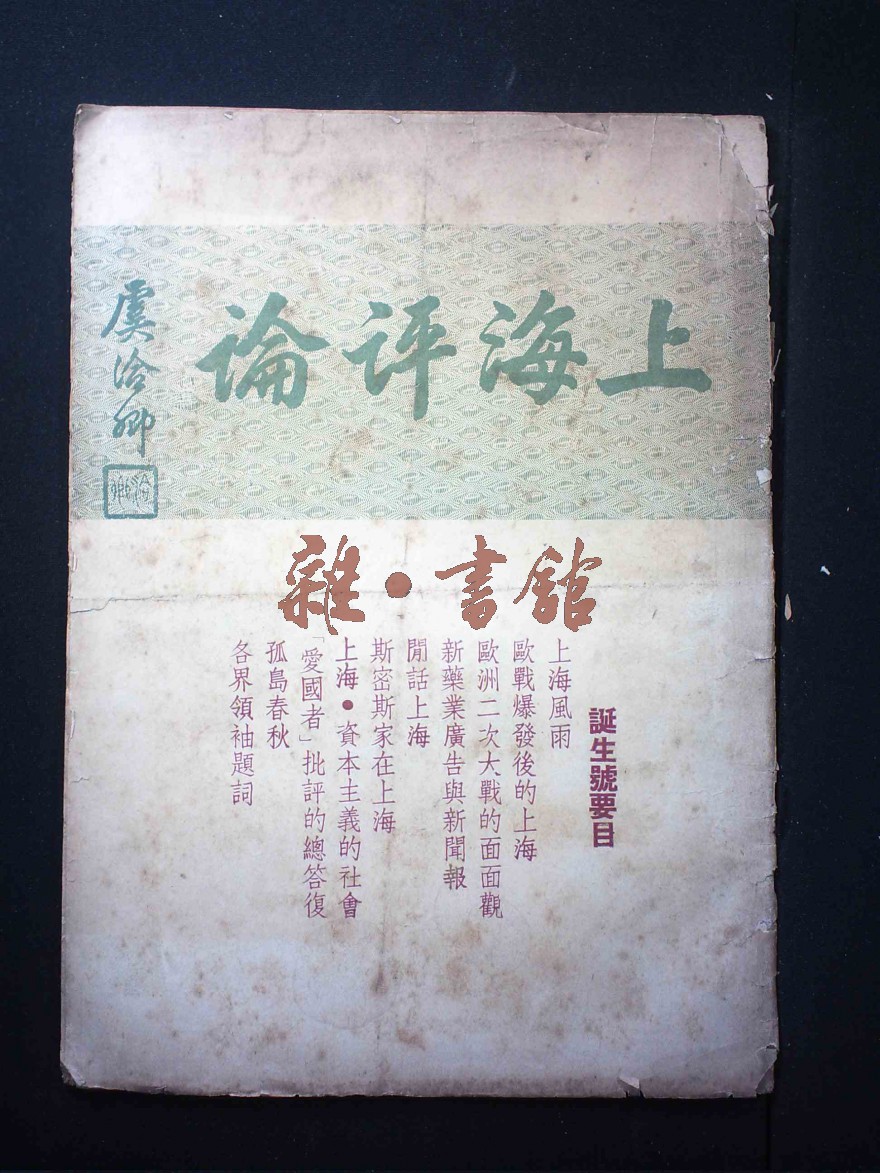 上海评論
虞洽卿
洽卿
雜•書館
誕生號要目
上海風雨
歐戰爆發後的上海
歐洲二次大戰的面面觀
新藥業廣告與新聞報
閒話上海
斯密斯家在上海
上海•資本主義的社會
「愛國者」批評的總答復
孤島春秋
各界領袖題詞